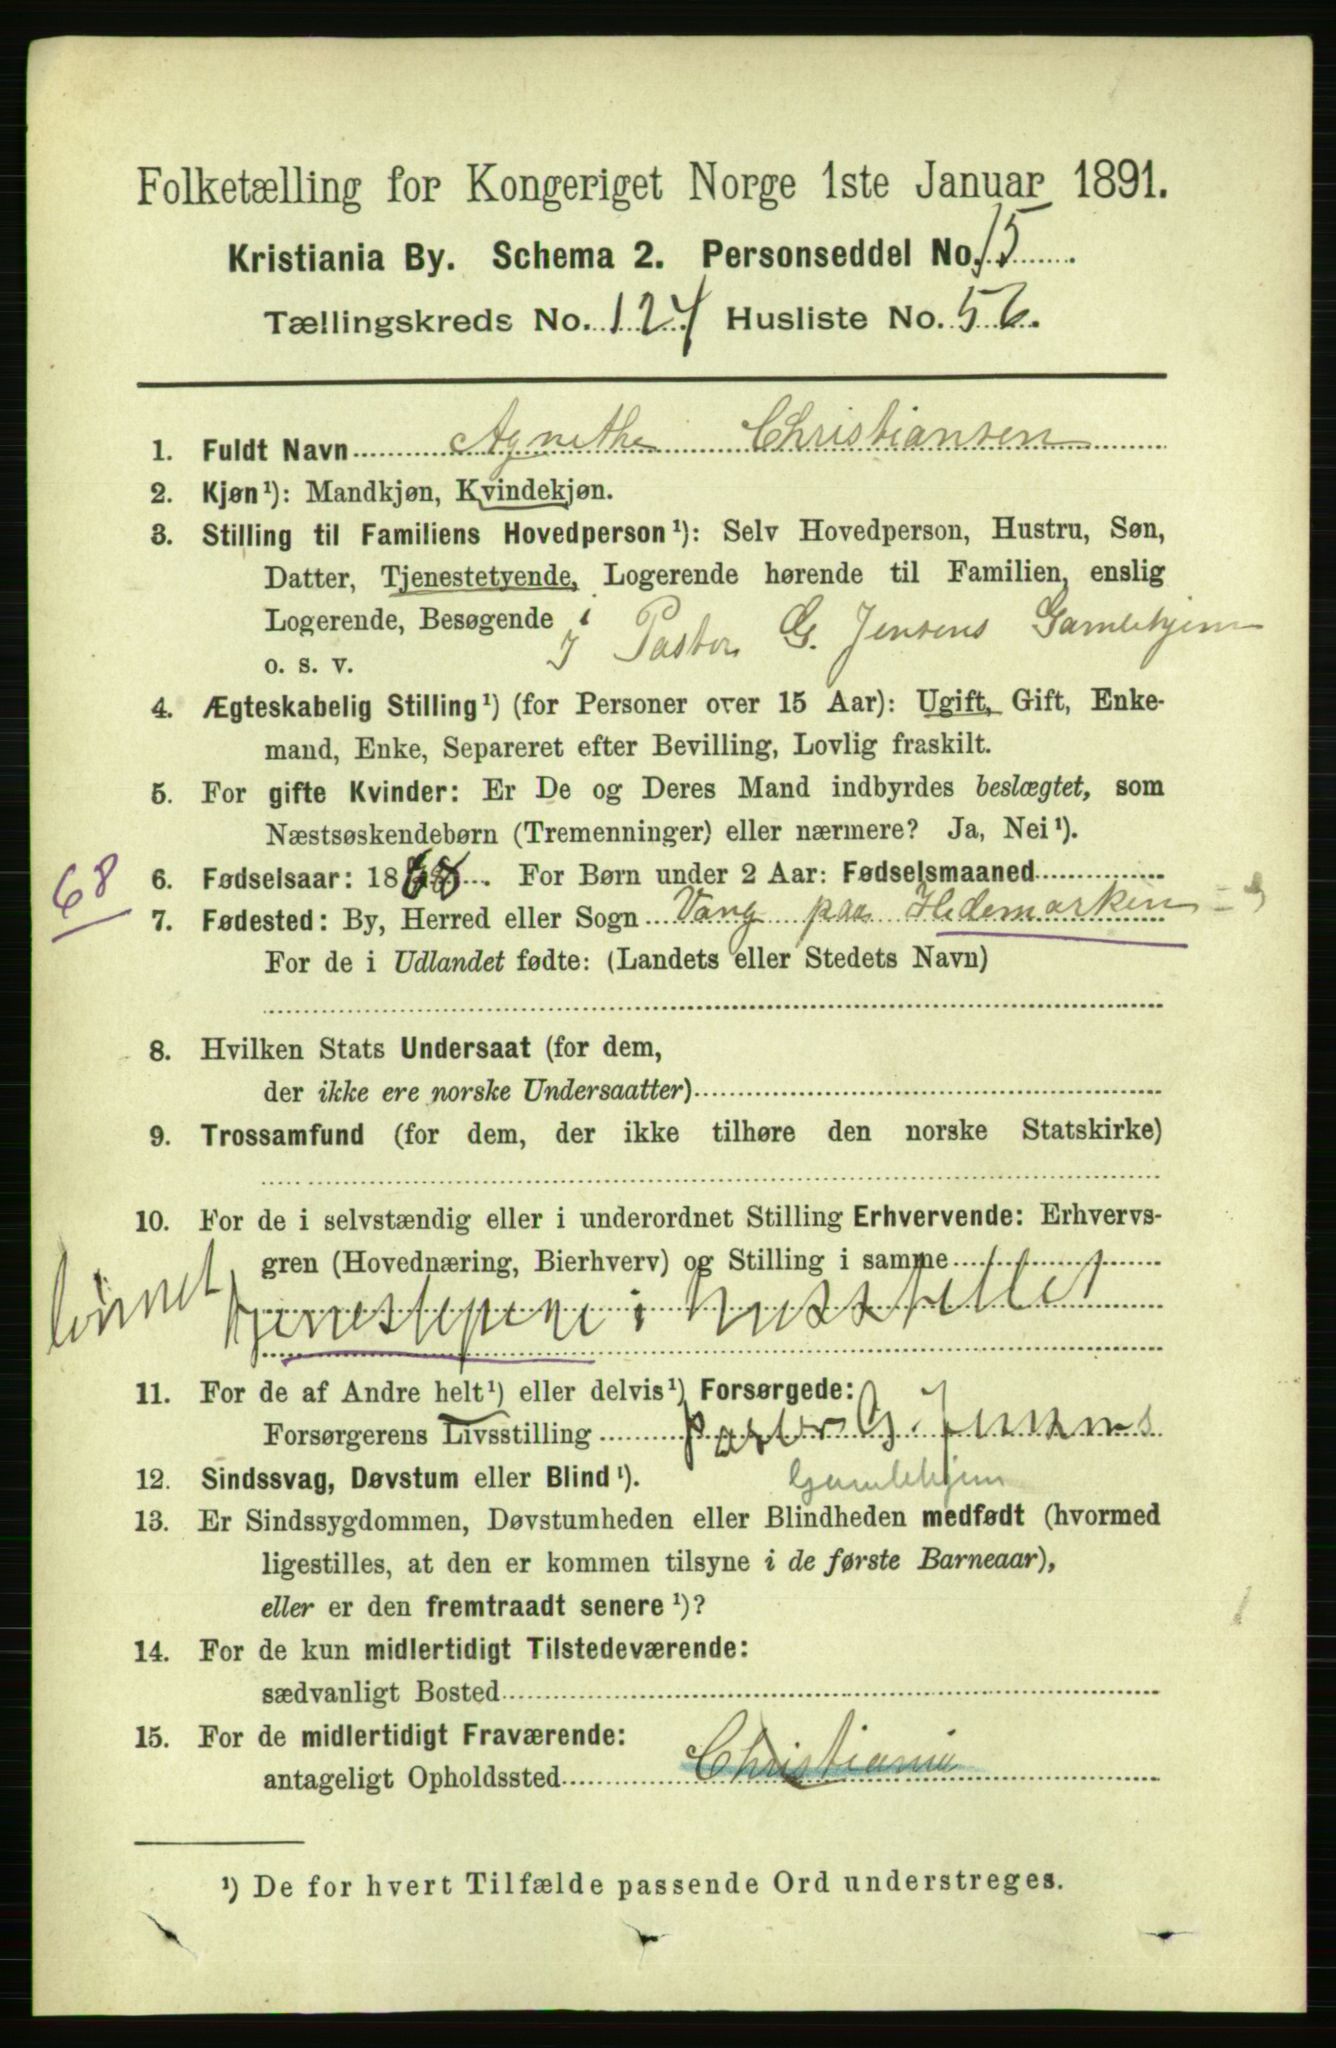 Folketælling for Kongeriget Norge 1ste Januar 1891.
Kristiania By. Schema 2. Personseddel No. 15
Tællingskreds No. 124 Husliste No. 56.
1. Fuldt Navn Agnethe Christiansen
2. Kjøn ¹): Mandkjøn, Kvindekjøn.
3. Stilling til Familiens Hovedperson ¹): Selv Hovedperson, Hustru, Søn,
Datter, Tjenestetyende, Logerende hørende til Familien, enslig
Logerende, Besøgende i
o. s. v. I Pastor G. Jensens Gamlehjem
4. Ægteskabelig Stilling ¹) (for Personer over 15 Aar): Ugift, Gift, Enke-
mand, Enke, Separeret efter Bevilling, Lovlig fraskilt.
5. For gifte Kvinder: Er De og Deres Mand indbyrdes beslægtet, som
Næstsøskendebørn (Tremenninger) eller nærmere? Ja, Nei ¹).
68 6. Fødselsaar: 1868. For Børn under 2 Aar: Fødselsmaaned
7. Fødested: By, Herred eller Sogn Vang paa Hedemarken
For de i Udlandet fødte: (Landets eller Stedets Navn)
8. Hvilken Stats Undersaat (for dem,
der ikke ere norske Undersaatter)
9. Trossamfund (for dem, der ikke tilhøre den norske Statskirke)
10. For de i selvstændig eller i underordnet Stilling Erhvervende: Erhvervs-
gren (Hovednæring, Bierhverv) og Stilling i samme
lønnet tjenestepene i husstellet
11. For de af Andre helt ¹) eller delvis ¹) Forsørgede:
Forsørgerens Livsstilling Pastor G. Jensens
Gamlehjem
12. Sindssvag, Døvstum eller Blind ¹).
13. Er Sindssygdommen, Døvstumheden eller Blindheden medfødt (hvormed
ligestilles, at den er kommen tilsyne i de første Barneaar),
eller er den fremtraadt senere ¹)?
14. For de kun midlertidigt Tilstedeværende:
sædvanligt Bosted
15. For de midlertidigt Fraværende:
antageligt Opholdssted Christiania
¹) De for hvert Tilfælde passende Ord understreges.